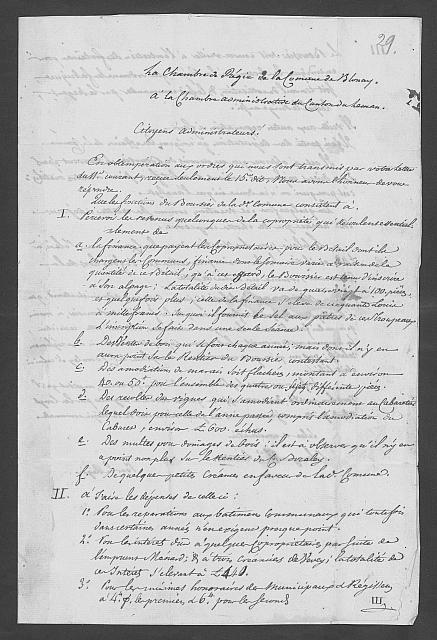 29.
La Chambre de Régie de la Comune de Blonay
à la Chambre administrative du Canton du Leman.
Citoyens administrateurs.
En obtemperation aux ordres qui nous sont transmis par votre lettre
du 11e. courant, reçue seulement le 15e. dit, Nous avons l'honneur de vous
répondre.
Que les fonctions du Boursier de la de. Comune consistent à.
I. Percevoir les revenus quelconques de la coproprieté qui découlent essentiel-
lement de
a. la finance que payent les Coproprietaires pour le Bétail dont ils
chargent les Communs, finance dont le sommaire varie à raison de la
quantité de ce Bétail, qu'à cet effet, le Boursier est tenu d'inscrire
à son alpage; La totalité du dit Bétail va de quatre vingt à 100 pièces,
et quelquefois plus; celle de la finance s'eleve de cinquante Louis
à mille francs. Sur quoi il fournit le sel aux pâtres de ces Troupeaux
L'inscription se fait dans une seule séance.
b. Des Ventes de bon qui se font chaque année, mais dont il n'y en
aura point sur le Rentier du Boursier contestant.
c. Des amodiation de marais soit flachères, montant à environ
40. ou 50. pour l'ensemble des quatre ou sept différentes pièces
d. Des recoltes des vignes qui s'amodient ordinairement au Cabaretier
lequel doit pour celle de l'année passée, compris l'amodiation du
Cabaret, environ £600. échus.
e. Des multes pour domages de bois: il est à observer qu'il n'y en
a point non plus sur le Rentier du C.
f. De quelques petites Créances en faveur de la de. Comune.
II. à Faire les dépenses de celle ci:
1°. Pour les reparations aux batimens Communaux qui toutefois
dans certaines années n'en exigent presque point.
2°. Pour les interêts dus à quelques Coproprietaires par suite de
l'emprunt Menard; & à trois Créanciers de Vevey; la totalité de
ces Interêts s'elevant à £440.
3°. Pour les minimes honoraires des Municipaux & Régisseurs
à 4. ₰. les premiers, & 6. pour les seconds
III.